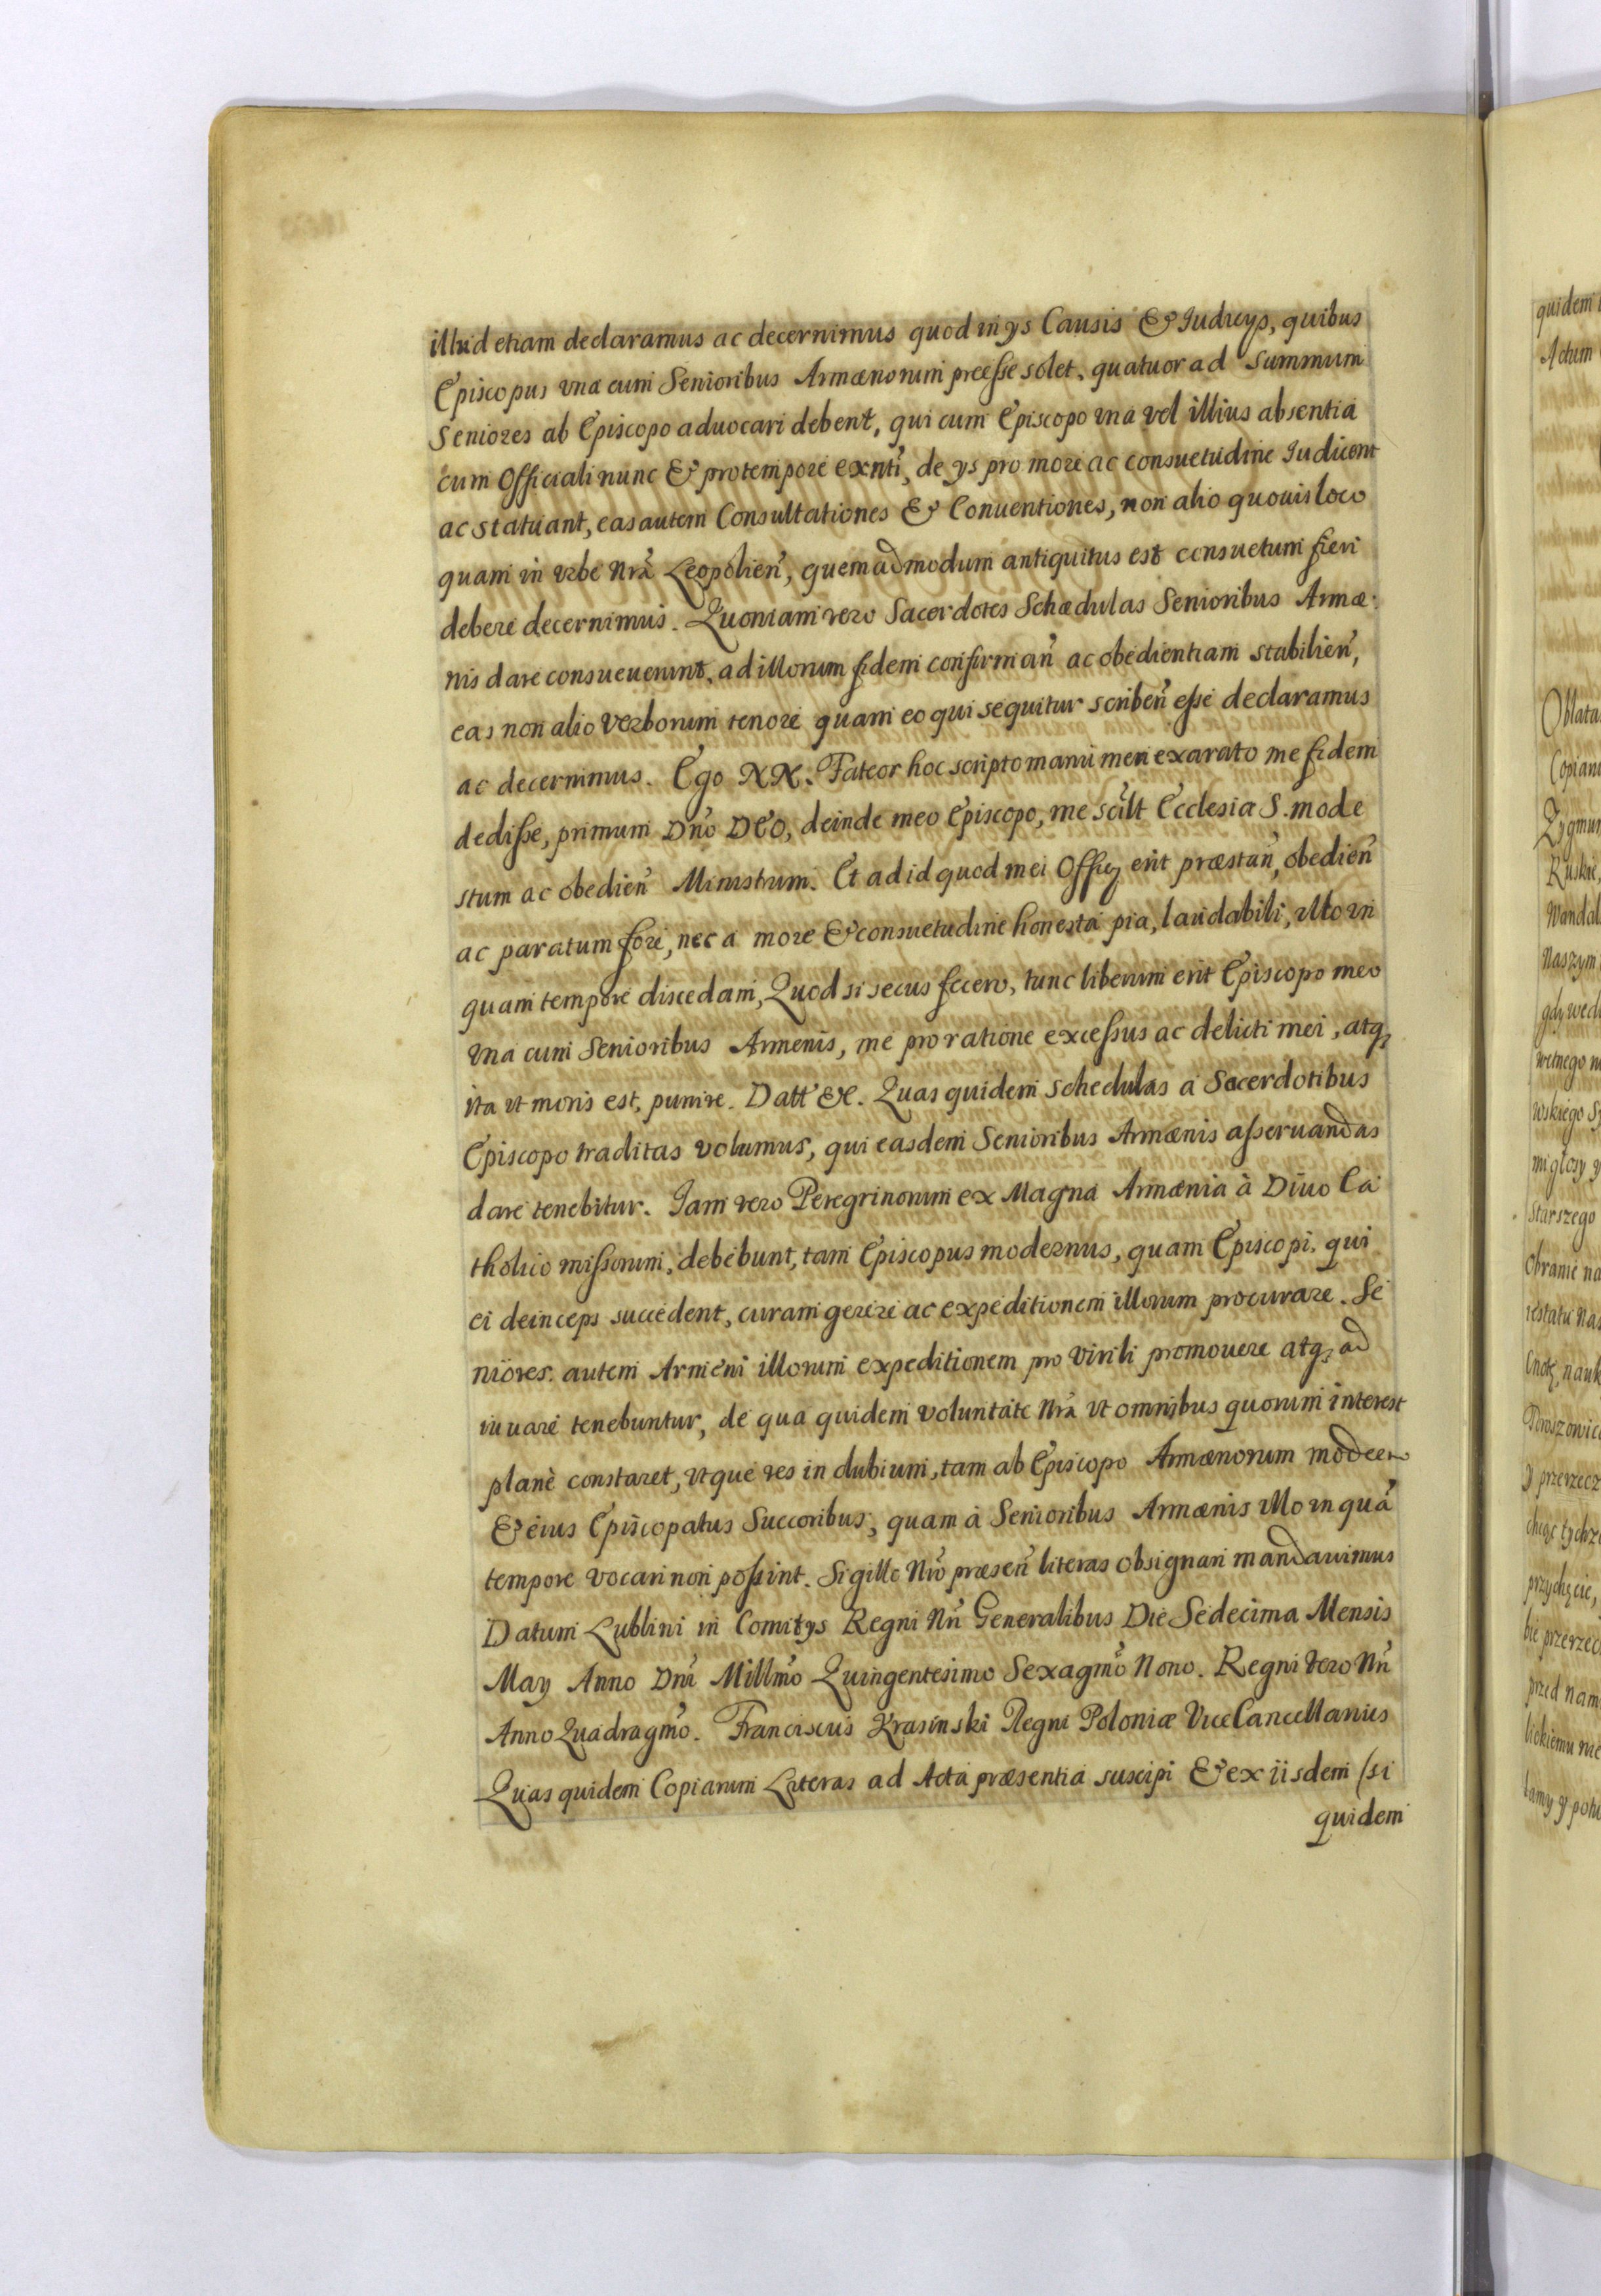 illud etiam declaramus ac decernimus quod in ys Causis & Iudicys, quibus
Episcopus vna cum Senioribus Armænorum præesse solet, quatuor ad summum
Seniores ab Episcopo aduocari debent, qui cum Episcopo vna vel illius absentia
cum Officiali nunc & pro tempore exnti, de ys pro more ac consuetudine Iudicent
ac statuant, eas autem Consultationes & Conuentiones, non alio quouis loco
quam in vrbe nrã Leopolien̄, quemadmodum antiquitus est consuetum fieri
debere decernimus. Quoniam vero Sacerdotes Schædulas Senioribus Armæ
nis dare consueuerunt, ad illorum fidem confirman̄ ac obedientiam stabilien̄,
eas non alio verborum tenore quam eo qui sequitur scriben̄ esse declaramus
ac decernimus. Ego NN. Fateor hoc scripto manu mea exarato me fidem
dedisse, primum Dn̄o DEO, deinde meo Episcopo, me scilt Ecclesia S. mode
stum ac obedien̄ Ministrum. Et ad id quod mei Officy erit præstan̄, obedien̄
ac paratum fore, nec a more & consuetudine honesta pia, laudabili, vllo vn
quam tempore discedam, Quod si secus fecero, tunc liberum erit Episcopo meo
vna cum Senioribus Armenis, me pro ratione excessus ac delicti mei, atq;
ita vt moris est, punire. Datt &c. Quas quidem schedulas a Sacerdotibus
Episcopo traditas volumus, qui easdem Senioribus Armænis asseruandas
dare tenebitur. Iam vero Peregrinorum ex Magna Armænia à Diuo Ca
tholico missorum, debebunt, tam Episcopus modernus, quam Episcopi, qui
ei deinceps succedent, curam gerere ac expeditionem illorum procurare. Se
niores autem Armeni illorum expeditionem pro virili promouere atq; ad
iuuare tenebuntur, de qua quidem voluntate nrã vt omnibus quorum interest
planè constaret, vtque res in dubium, tam ab Episcopo Armænorum modern
& eius Episcopatus Succoribus, quam à Senioribus Armænis vllo inquã
tempore vocari non possint. Sigillo nr̄o præsen̄ literas obsignari mandauimus
Datum Lublini in Comitys Regni nr̄i Generalibus Die Sedecima Mensis
May Anno Dn̄i Millm̄o Quingentesimo Sexagm̄o Nono. Regni vero nr̄i
Anno Quadragm̄o. Franciscus Krasinski Regni Poloniæ ViceCancellarius
Quas quidem Copiarum Literas ad Acta præsentia suscipi & ex iisdem (si
quidem
quidem
Actum
Oblata
Zygmun
Ruskie,
Wandal
naszym
starszego
Obranie na
y przerzecz
przychęcie,
bie przerzec
przed nam